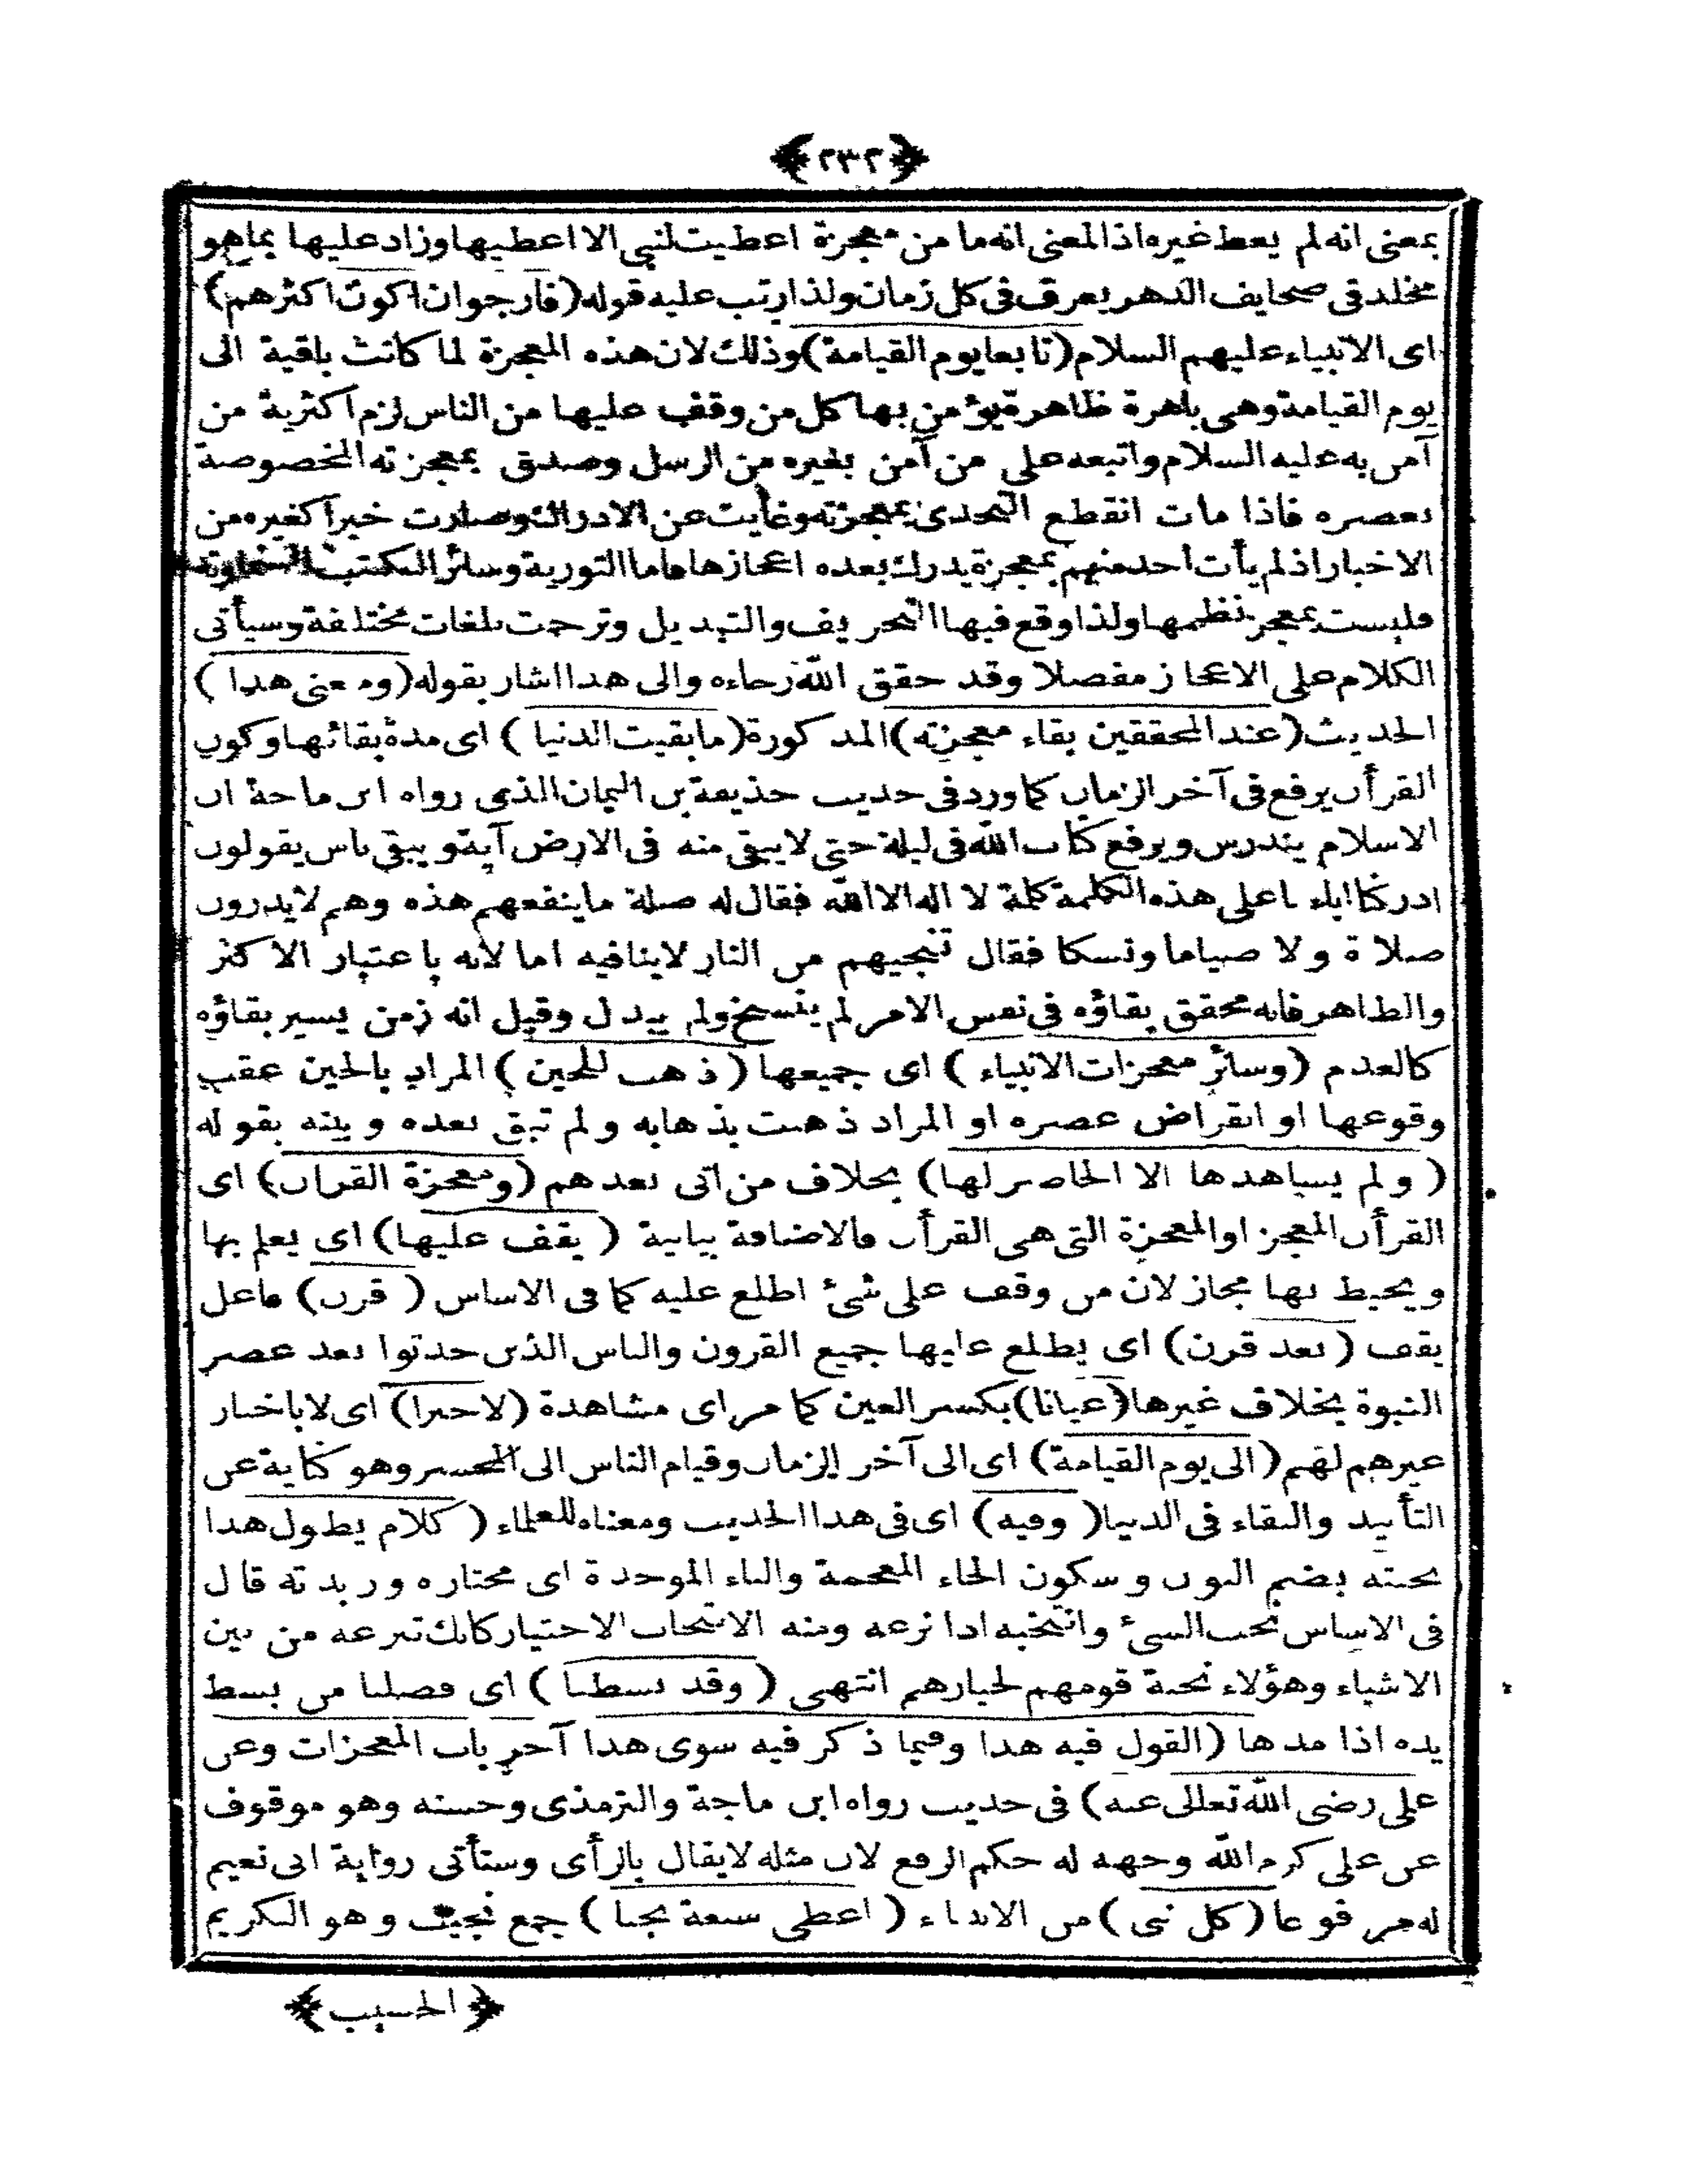 ﴿٢٣٢﴾
بمعنى انه لم يعط غيره اذ المعنى انه ما من معجزة اعطيت لنبى الا اعطيها وزاد عليها بما هو
مخلد فى صحايف الدهر يعرف فى كل زمان ولذا رتب عليه قوله (فأرجو ان اكون اكثرهم)
اى الانبياء عليهم السلام (تابعا يوم القيامة) وذلك لان هذه المعجزة لما كانت باقية الى
يوم القيامة وهى باهرة ظاهرة يؤمن بها كل من وقف عليها من الناس لزم اكثرية من
آمن به عليه السلام واتبعه على من آمن بغيره من الرسل وصدق بمعجزته المخصوصة
بعصره فاذا مات انقطع التحدى بمعجزته وغابت عن الادراك وصارت خبرا كغيره من
الاخبار اذ لم يأت احد منهم بمعجزة يدرك بعده اعجازها فاما التورية وسائر الكتب
فليست بمعجز نظمها ولذا وقع فيها التحريف والتبديل وترجمت بلغات مختلفة وسيأتى
الكلام على الاعجاز مفصلا وقد حقق الله رجاءه والى هذا اشار بقوله (ومعنى هذا)
الحديث (عند المحققين بقاء معجزته) المذكورة (ما بقيت الدنيا) اى مدة بقائها وكون
القرأن يرفع فى آخر الزمان كما ورد فى حديث حذيفة بن اليمان الذى رواه ابن ماجة ان
الاسلام يندرس ويرفع كتاب الله فى ليلة حتى لا يبقى منه فى الارض آية ويبقى ناس يقولون
ادركنا اباءنا على هذه الكلمة كلمة لا اله الا الله فقال له صلة ما ينفعهم هذه وهم لا يدرون
صلاة ولا صياما ونسكا فقال تنجيهم من النار لا ينافيه اما لانه باعتبار الاكثر
والظاهر فانه محقق بقاؤه فى نفس الامر لم ينسخ ولم يبدل وقيل انه زمن يسير بقاؤه
كالعدم (وسائر معجزات الانبياء) اى جميعها (ذهب للحين) المراد بالحين عقب
وقوعها او انقراض عصره او المراد ذهبت بذهابه ولم تبق بعده وبينه بقوله
(ولم يشاهدها الا الحاضر لها) بخلاف من اتى بعدهم (ومعجزة القران) اى
القرأن المعجز او المعجزة التى هى القرأن فالاضافة بيانية (يقف عليها) اى يعلم بها
ويحيط بها مجاز لان من وقف على شئ اطلع عليه كما فى الاساس (قرن) فاعل
يقف (بعد قرن) اى يطلع عليها جميع القرون والناس الذين حدثوا بعد عصر
النبوة بخلاف غيرها (عيانا) بكسر العين كما مر اى مشاهدة (لا خبرا) اى لا باخبار
غيرهم لهم (الى يوم القيامة) اى الى آخر الزمان وقيام الناس الى المحشر وهو كناية عن
التأبيد والبقاء فى الدنيا (وفيه) اى فى هذا الحديث ومعناه للعلماء (كلام يطول هذا
نخبته بضم النون وسكون الخاء المعجمة والباء الموحدة اى مختاره وزبدته قال
فى الاساس نخب الشئ وانتخبه اذا نزعه ومنه الانتخاب الاختيار كانك تنزعه من بين
الاشياء وهؤلاء نخبة قومهم لخيارهم انتهى (وقد بسطنا) اى فصلنا من بسط
يده اذا مدها (القول فيه هذا وفيما ذكر فيه سوى هذا آخر باب المعجزات وعن
على رضى الله تعالى عنه) فى حديث رواه ابن ماجة والترمذى وحسنه وهو موقوف
عن على كرم الله وجهه له حكم الرفع لان مثله لا يقال بالرأى وستأتى رواية ابى نعيم
له مرفوعا (كل نبى) من الانبياء (اعطى سبعة نجبا) جمع نجيب وهو الكريم
﴿الحسيب﴾